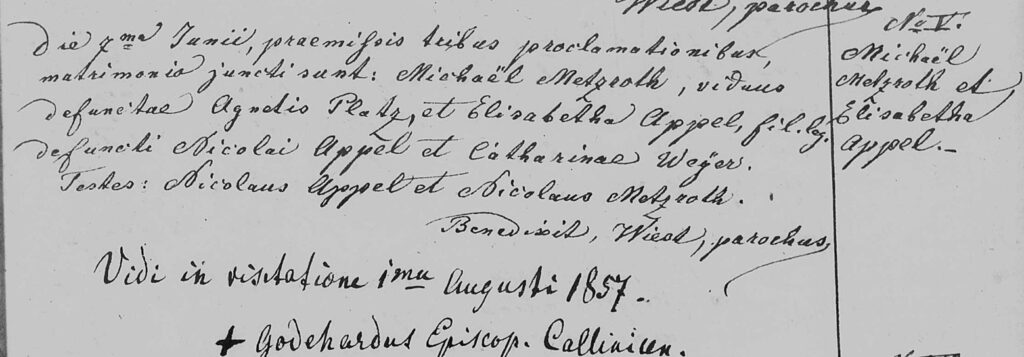 Wiest, parochus
Die 7ma Junii, praemissis tribus proclamationibus,
matrimonio juncti sunt: Michaël Metzroth, viduus
defunctae Agnetis Platz, et Elisabetha Appel, fil. leg.
defuncti Nicolai Appel et Catharinae Weÿer.
Testes: Nicolaus Appel et Nicolaus Metzroth.
Benedixit, Wiest, parochus,
No V.
Michaël
Metzroth et
Elisabetha
Appel.-
Vidi in visitatione 1ma Augusti 1857.
+ Godehardus Episcop. Callinicen.